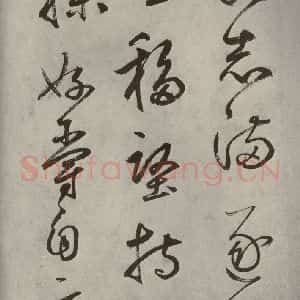 志滿逐
移堅持
操好爵自
Shufawang.CN